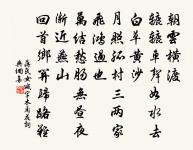 朝雲橫渡
轆轆車聲如水去
白草黃沙
月照孤村三兩家
飛鴻過也
萬結愁腸無晝夜
漸近燕山
回首鄉關歸路難
蔣氏女減字木蘭花詞